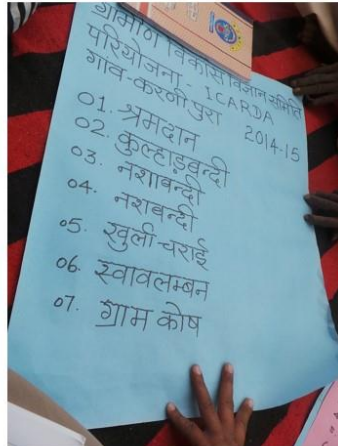 ग्रामीण विकास विज्ञान समिति
परियोजना - ICARDA
गांव-करणी पुरा 2014-15
01. श्रमदान
02. कुल्हाड़बन्दी
03. नशाबन्दी
04. नशबन्दी
05. खुली-चराई
06. स्वावलम्बन
07. ग्राम कोष